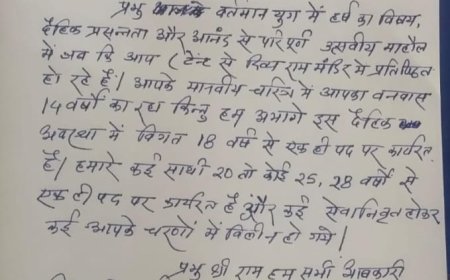 प्रभु आपके वर्तमान युग में हर्ष का विषय,
दैहिक प्रसन्नता और आनंद से परिपूर्ण उत्सवीय माहौल
में जब कि आप (टेन्ट से दिव्य राम मंदिर में प्रतिष्ठित
हो रहे हैं। आपके मानवीय चरित्र में आपका वनवास
14 वर्षों का रहा किन्तु हम अभागे इस दैहिक
अवस्था में विगत 18 वर्ष से एक ही पद पर कार्यरत
हैं। हमारे कई साथी 20 तो कोई 25, 28 वर्षों से
एक ही पद पर कार्यरत हैं और कई सेवानिवृत होकर
कई आपके चरणों में विलीन हो गये।
प्रभु श्री राम हम सभी आबकारी